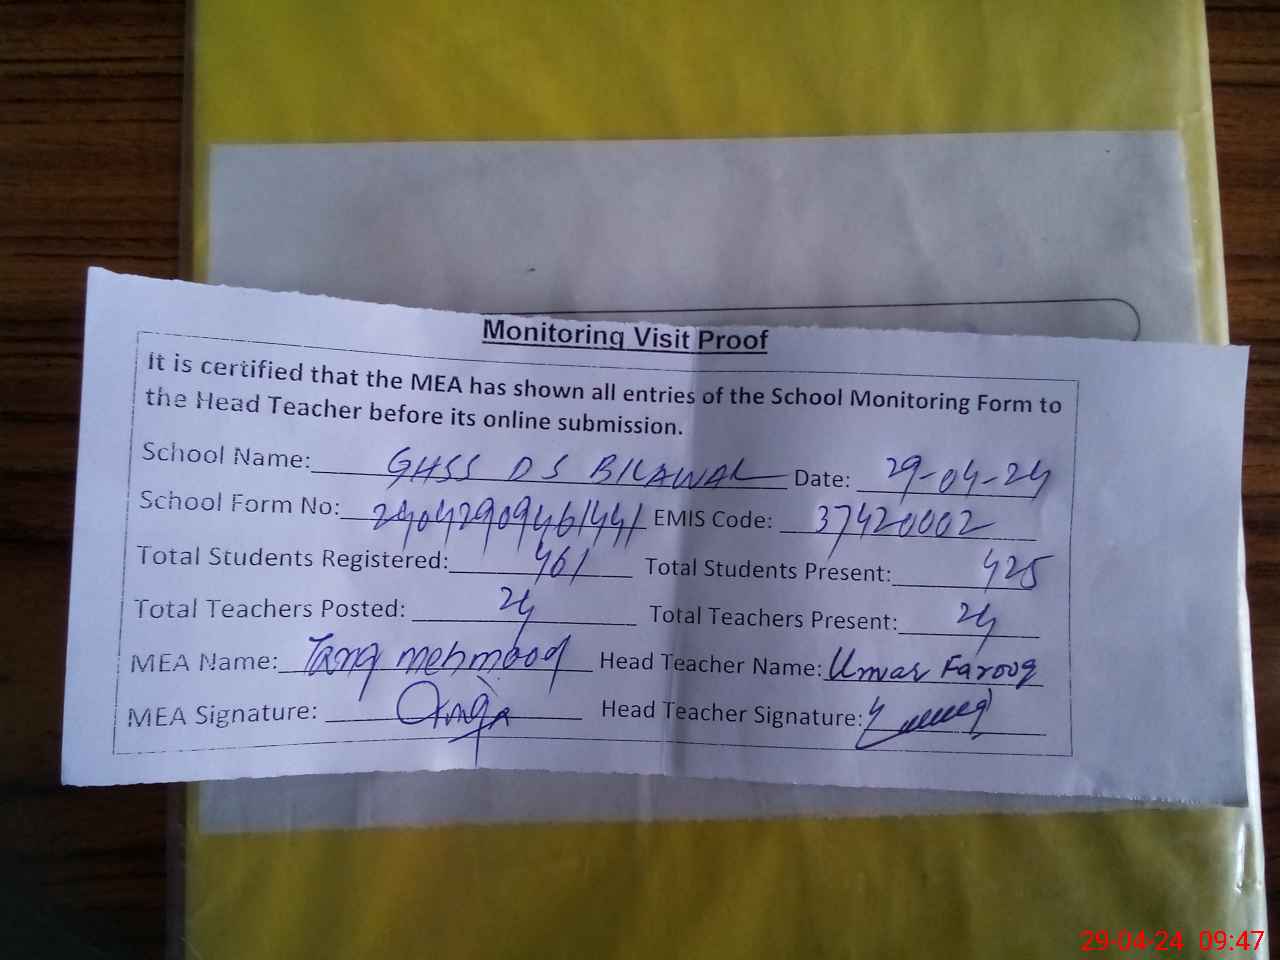 Monitoring Visit Proof
It is certified that the MEA has shown all entries of the School Monitoring Form to
the Head Teacher before its online submission.
School Name: GHSS D S BILAWAL Date: 29-04-24
School Form No: 24042909461441 EMIS Code: 37420002
Total Students Registered: 461 Total Students Present: 425
Total Teachers Posted: 24 Total Teachers Present: 24
MEA Name: Tariq mehmood Head Teacher Name: Umar Farooq
MEA Signature: Head Teacher Signature:
29-04-24 09:47